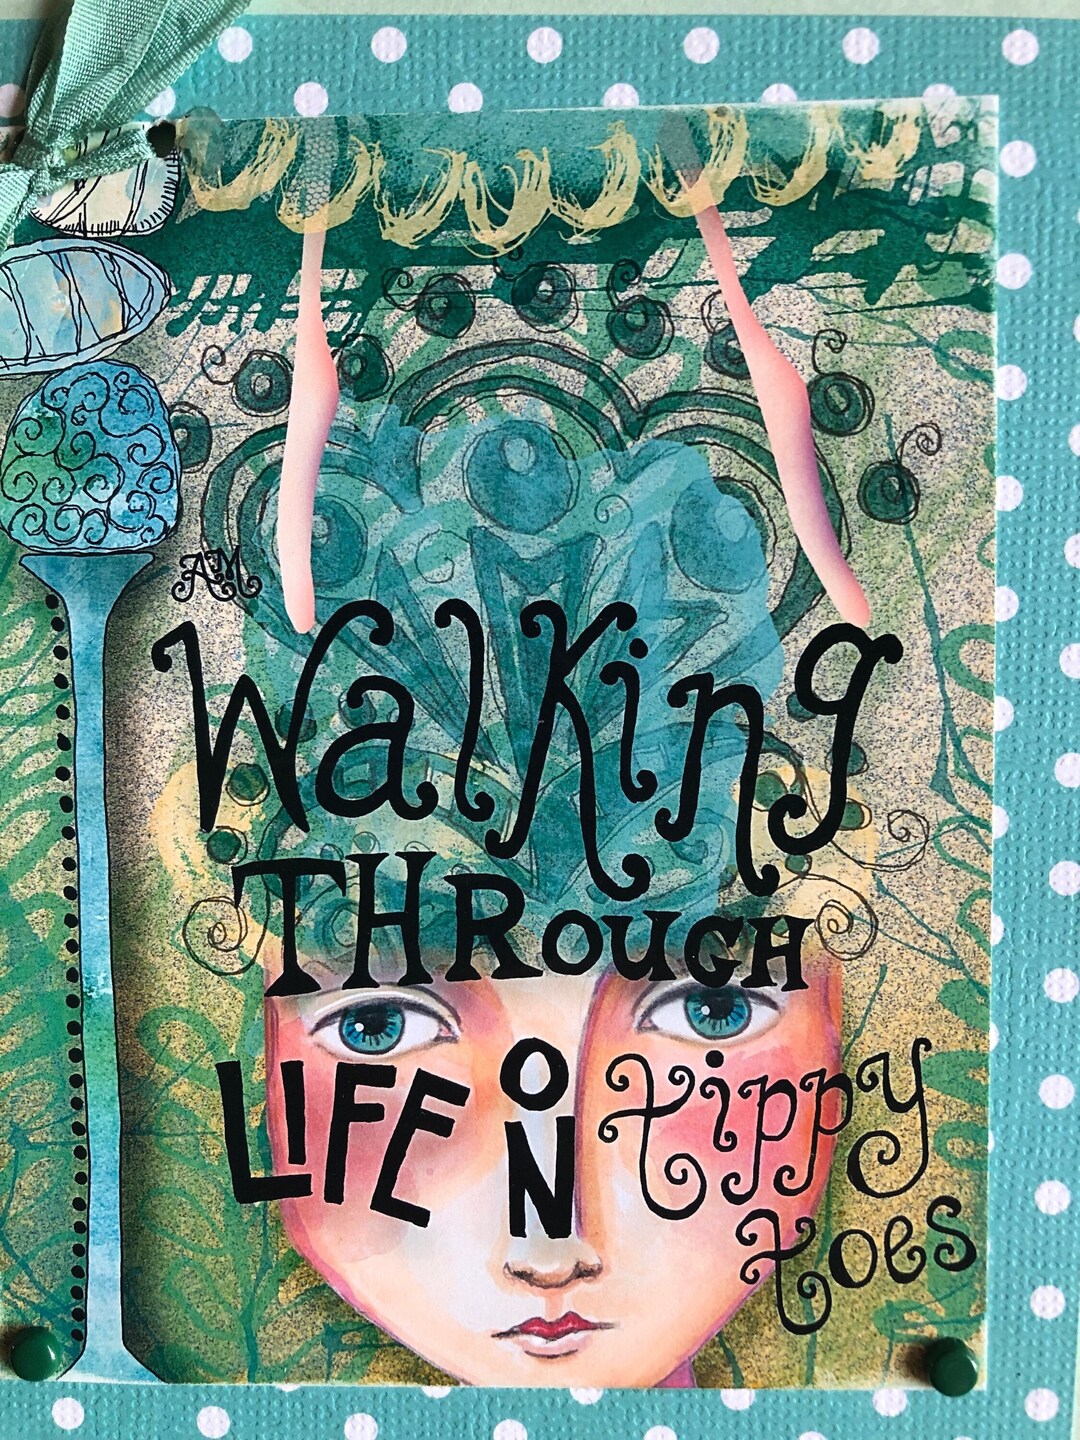 AM
Walking
THROUGH
LIFE ON tippy
toes